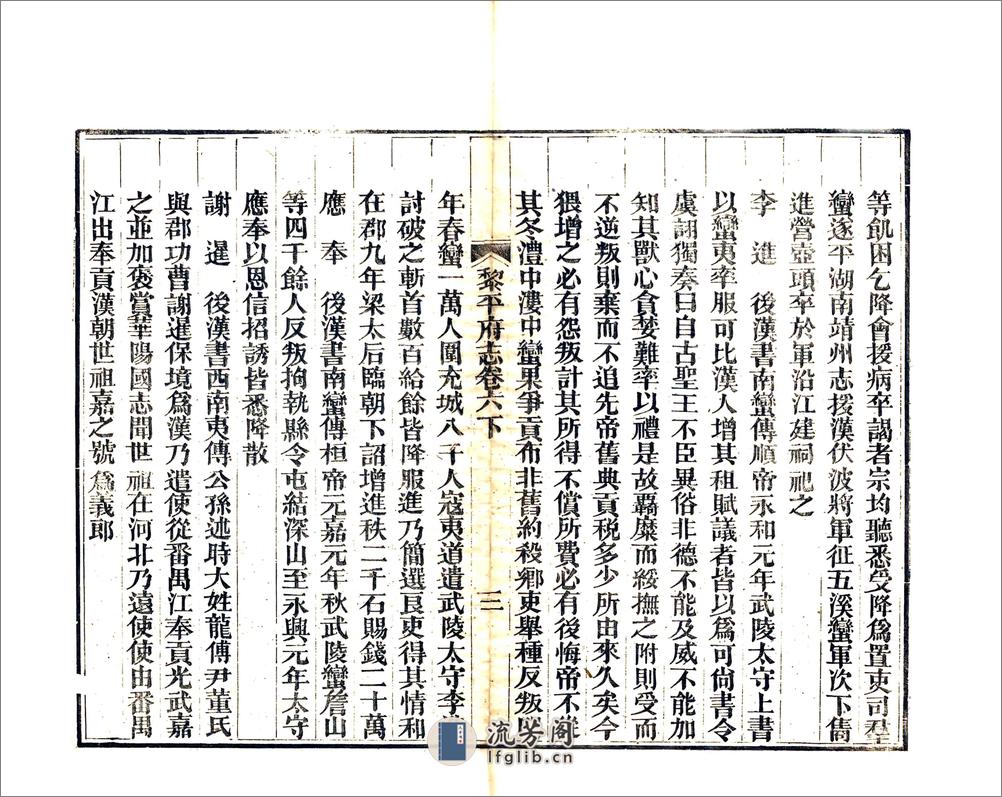 等飢困乞降會援病卒謁者宗均聽悉受降爲置吏司羣
蠻遂平湖南靖州志援漢伏波將軍征五溪蠻軍次下雋
進營壺頭卒於軍沿江建祠祀之
李　進　後漢書南蠻傳順帝永和元年武陵太守上書
以蠻夷率服可比漢人增其租賦議者皆以爲可尙書令
虞詡獨奏曰自古聖王不臣異俗非德不能及威不能加
知其獸心貪婪難率以禮是故羈縻而綏撫之附則受而
不逆叛則棄而不追先帝舊典貢税多少所由來久矣今
猥增之必有怨叛計其所得不償所費必有後悔帝不從
其冬澧中漊中蠻果爭貢布非舊約殺鄉吏舉種反叛明
黎平府志卷六下
三
年春蠻一萬人圍充城八千人寇夷道遣武陵太守李進
討破之斬首數百給餘皆降服進乃簡選良吏得其情和
在郡九年梁太后臨朝下詔增進秩二千石賜錢二十萬
應　奉　後漢書南蠻傳桓帝元嘉元年秋武陵蠻詹山
等四千餘人反叛拘執縣令屯結深山至永興元年太守
應奉以恩信招誘皆悉降散
謝　暹　後漢書西南夷傳公孫述時大姓龍傅尹董氏
與郡功曹謝暹保境爲漢乃遣使從番禺江奉貢光武嘉
之並加褒賞華陽國志聞世祖在河北乃遠使使由番禺
江出奉貢漢朝世祖嘉之號爲義郎
流芳閣
lfglib.cn